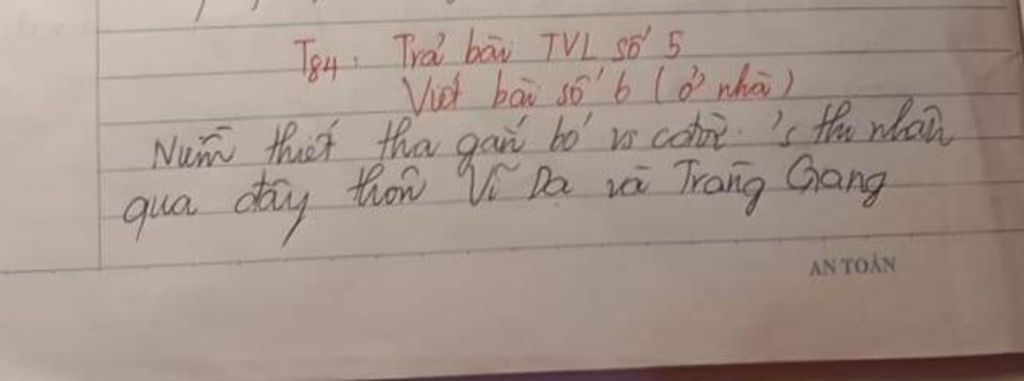 T84: Trả bài TVL số 5
Viết bài số 6 (ở nhà)
Niềm thiết tha gắn bó vs của thi nhân
qua đây thôn Vĩ Dạ và Tràng Giang
AN TOÀN